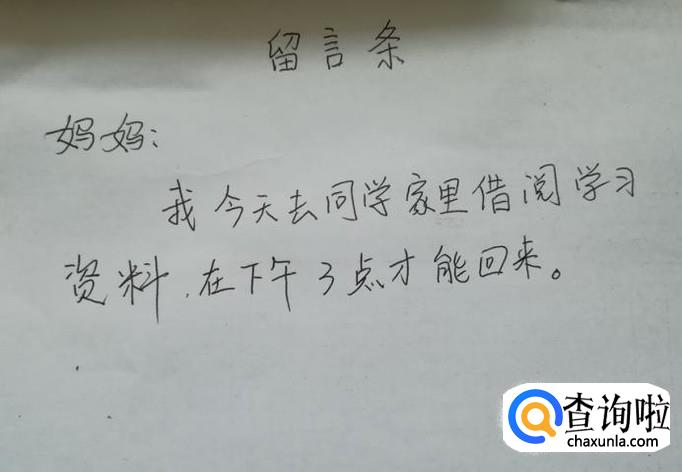 留言条
妈妈：
我今天去同学家里借阅学习
资料，在下午3点才能回来。
查询啦
chaxunla.com